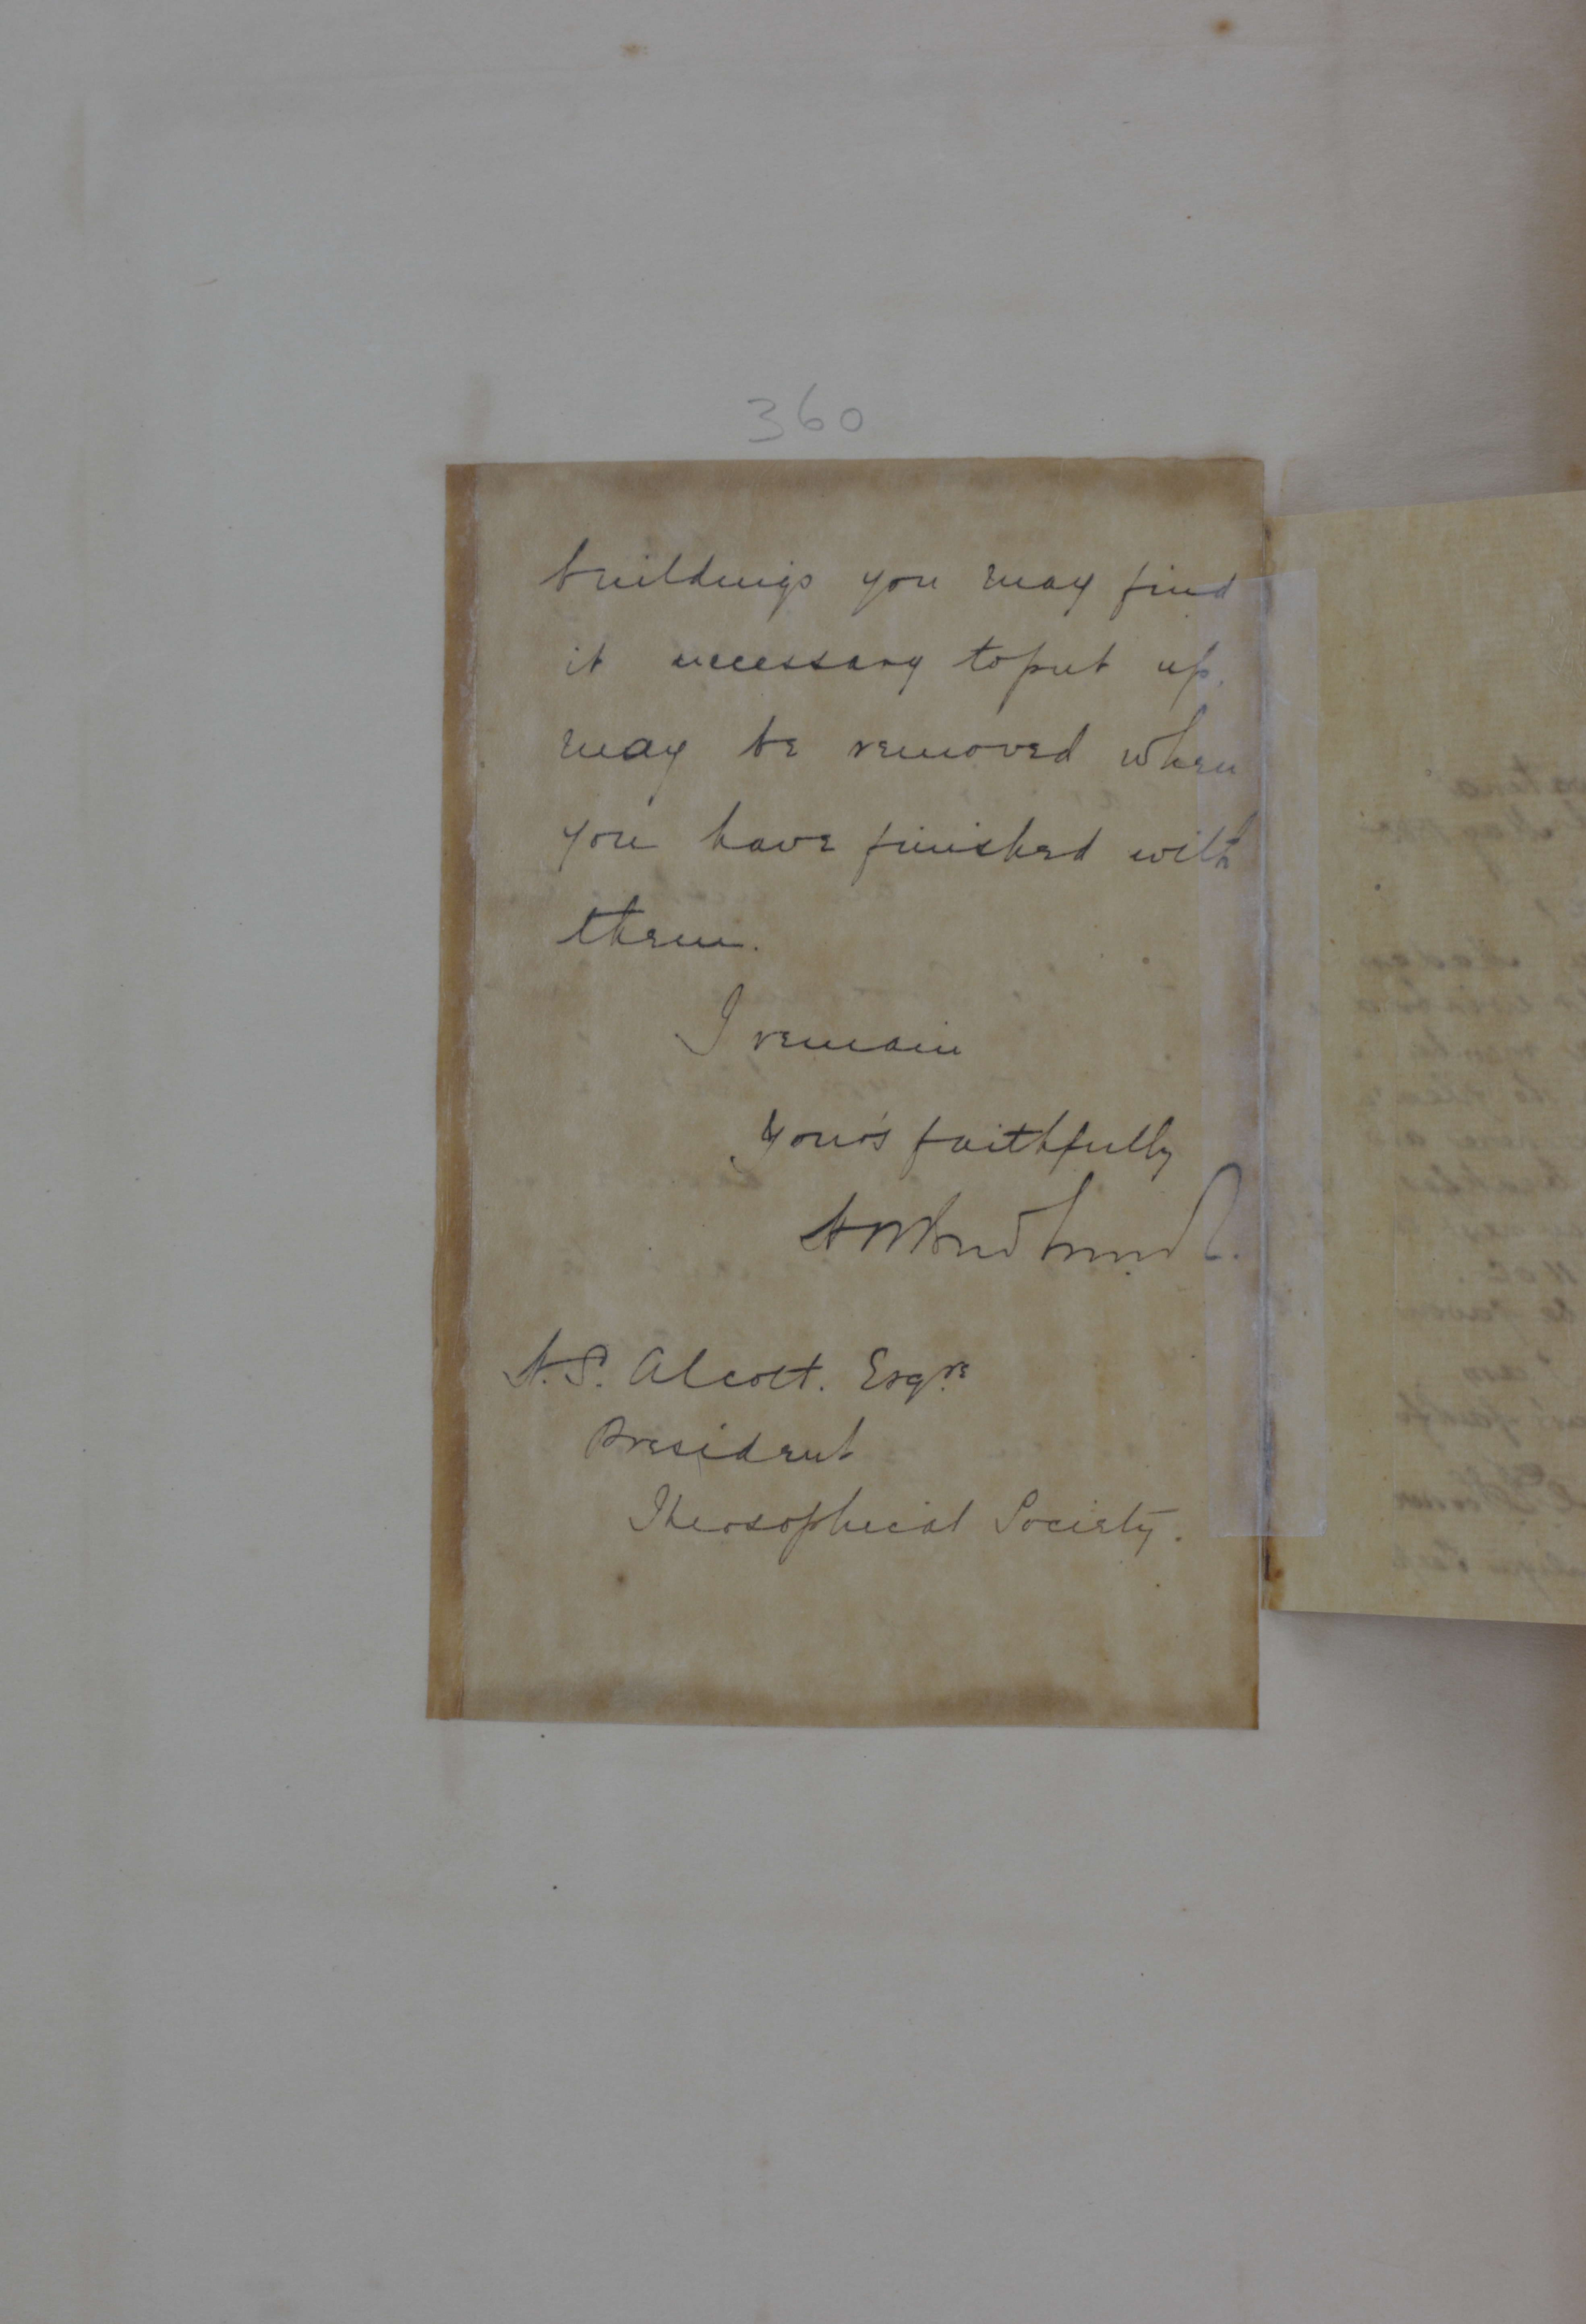 360
buildings you may find
it necessary to put up.
may be removed when
you have finished with
them.
I remain
Yours faithfully
H. S. Alcott. Esqre
President
Theosophical Society.